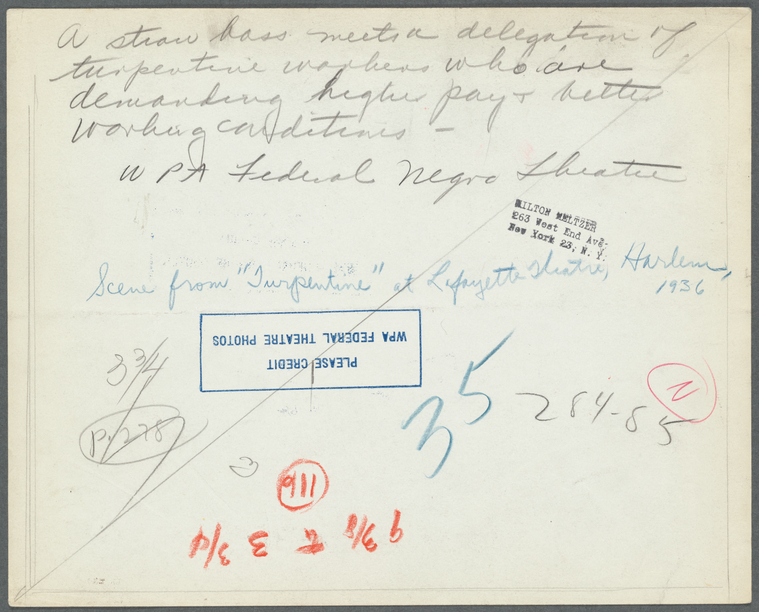 A straw boss meets a delegation of
turpentine workers who are
demanding higher pay & better
working conditions -
WPA Federal Negro Theatre
MILTON MELTZER
263 West End Ave.
New York 23, N. Y.
Scene from "Turpentine" at Lafayette Theatre, Harlem,
1936
PLEASE CREDIT
WPA FEDERAL THEATRE PHOTOS
3 3/4
P. 278
35
284-85
2
116
9 3/8 3 3/4